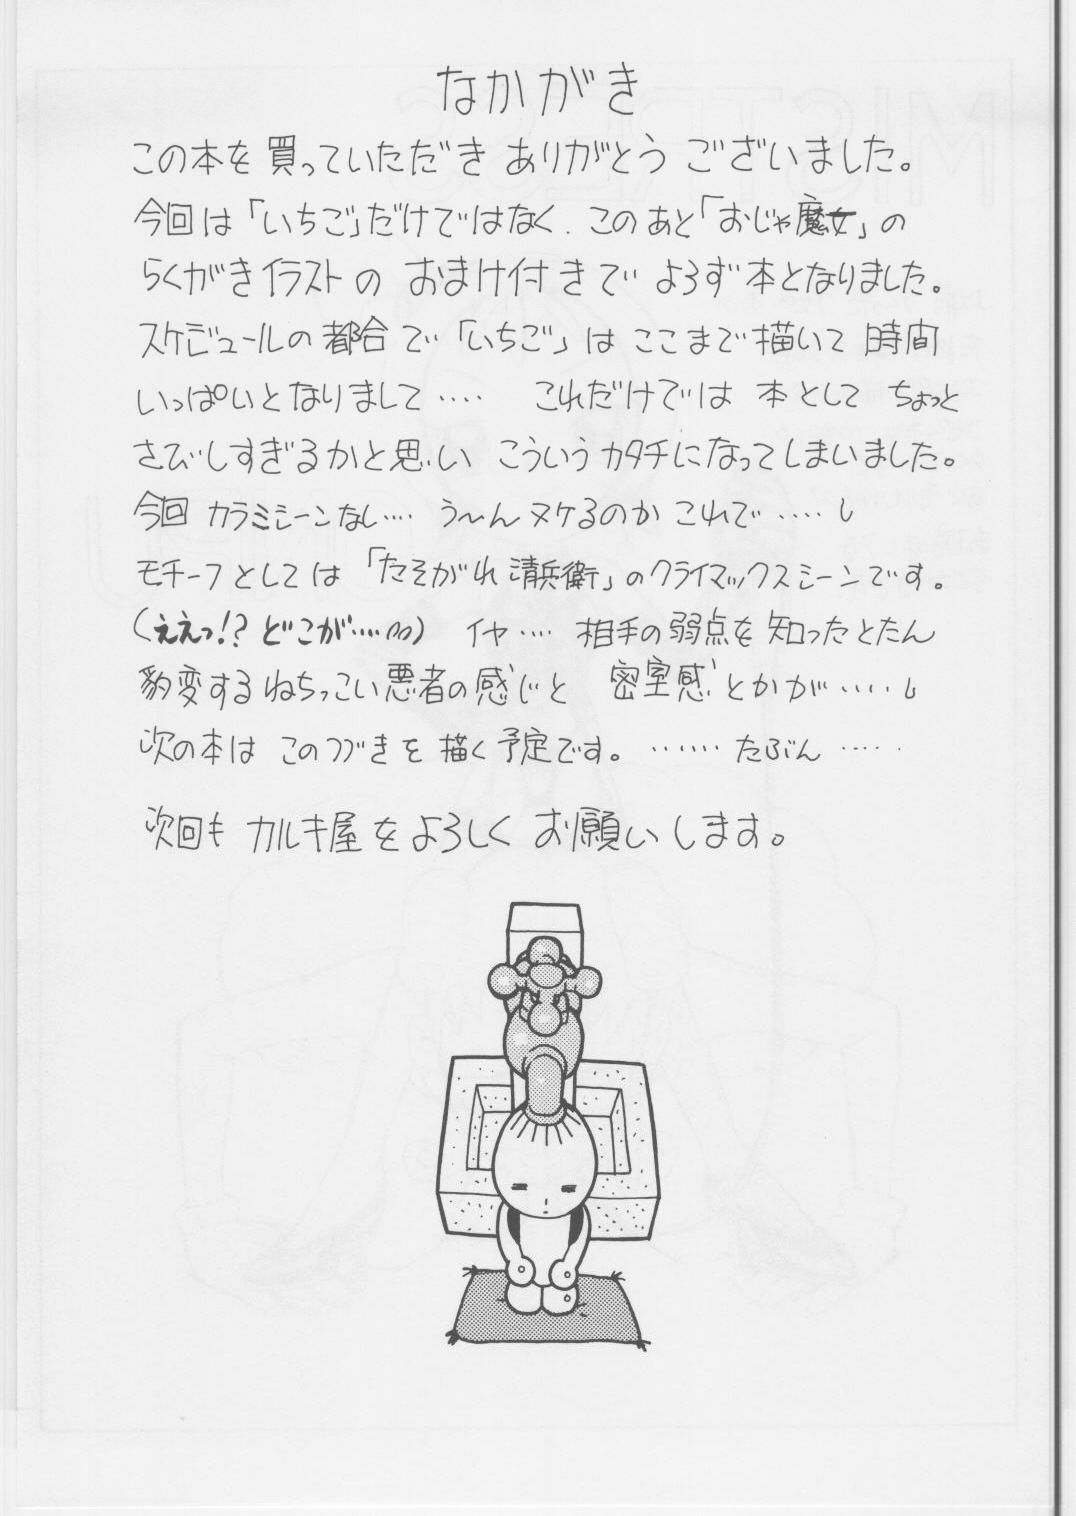 なかがき
この本を買っていただきありがとうございました。
今回は「いちご」だけではなく、このあと「おじゃ魔女」の
らくがきイラストの おまけ付きで よろず本となりました。
スケジュールの都合で「いちご」はここまで描いて時間
いっぱいとなりまして‥‥ これだけでは 本として ちょっと
さびしすぎるかと思い こういうカタチになってしまいました。
今回 カラミシーンなし‥‥ う〜ん ヌケるのか これで ‥‥‥
モチーフとしては「たそがれ清兵衛」のクライマックスシーンです。
(ええっ!? どこが‥‥) イヤ‥‥ 相手の弱点を 知ったとたん
豹変する ねちっこい悪者の感じと 密室感とかが ‥‥‥
次の本は このつづきを 描く予定です。 ‥‥‥ たぶん ‥‥‥
次回も カルキ屋をよろしく お願いします。